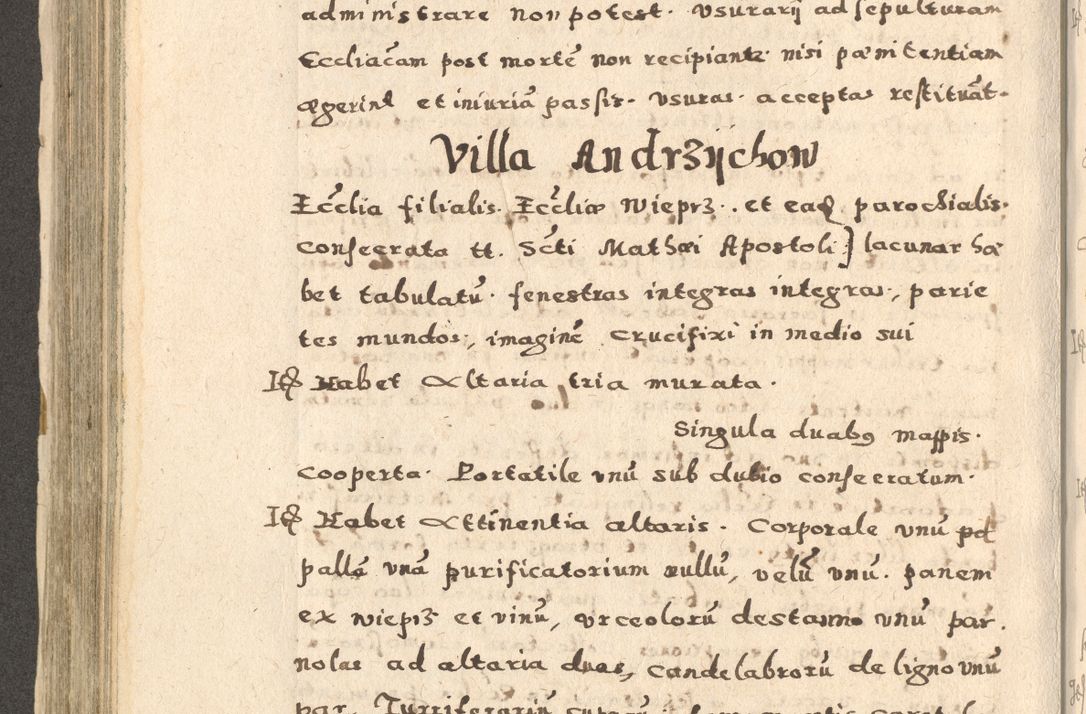 administrare non potest. Vsurarij ad sepulturam
Eccliacãm post mortẽ non recipiantr nisi pænitentiam
ægerint et iniuriã passis. Vsuras. acceptas restituãt.
Villa Andrzijchow
Ecclia filialis. Eccliæ Wieprz. et eaq parochialis.
Consecrata tt. Scti Mathæi Apostoli] lacunar ha
bet tabulatũ. fenestras integras integras, parie
tes mundos, imaginẽ Crucifixi in medio sui
Itẽ Habet Altaria tria murata.
Singula duabɋ mappis.
Cooperta. Portatile vnũ sub dubio consecratum.
Itẽ Habet Attinentia altaris. Corporale vnũ
pallã vnã purificatorium nullũ, velũ vnũ. panem
ex wieprz et vinũ, vrceolorũ destanno vnũ par.
nolas ad altaria duas, Candelabrorũ de ligno vnũ
par.